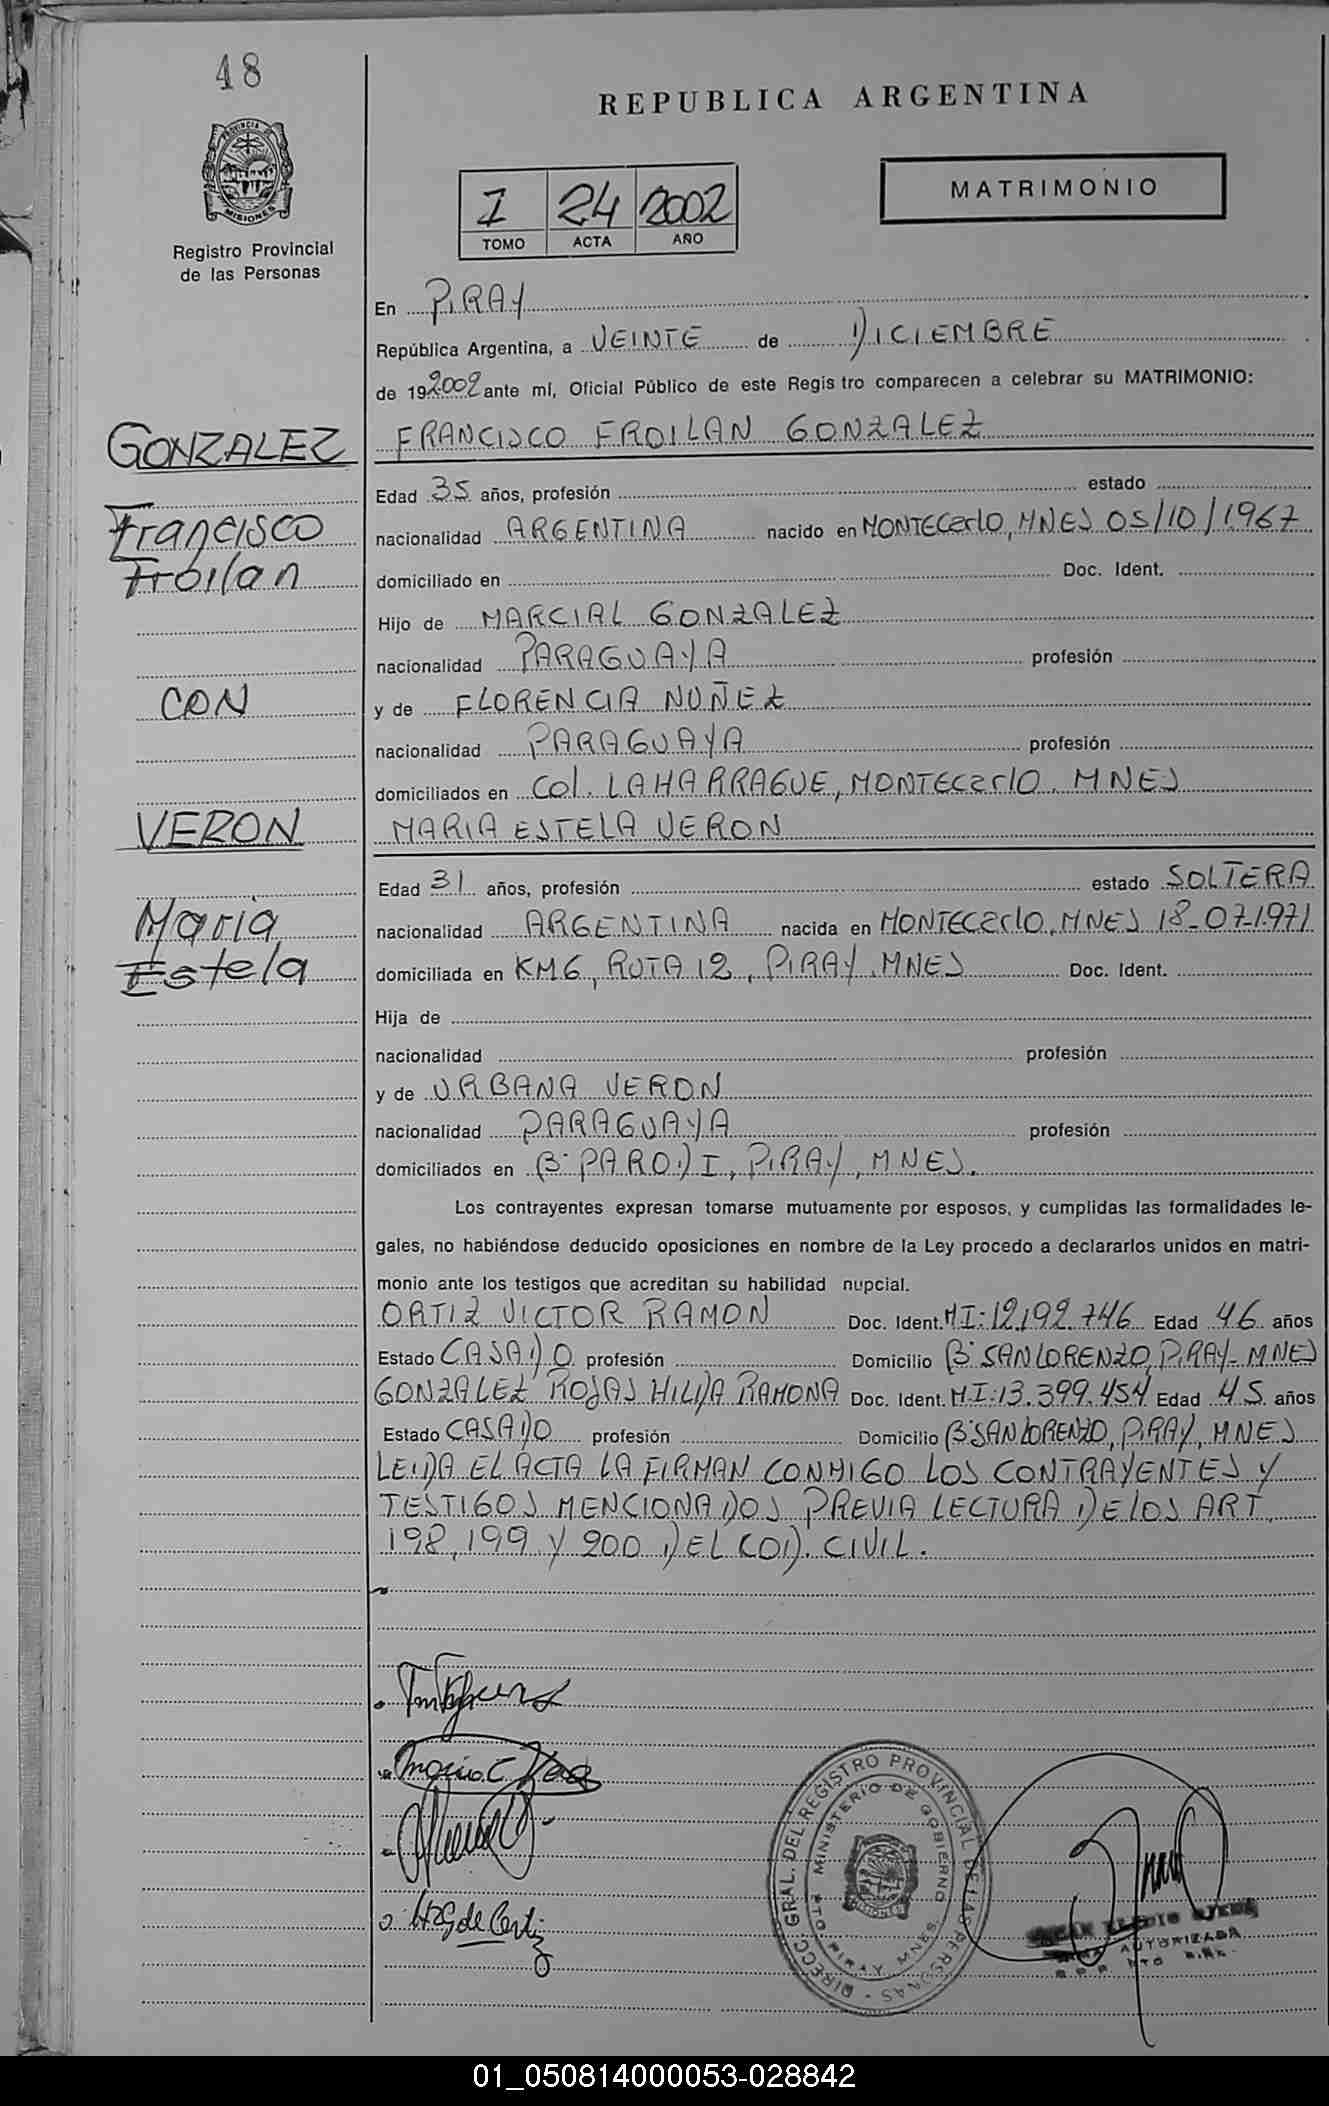 48
REPUBLICA ARGENTINA
PROVINCIA DE
MISIONES
Registro Provincial
de las Personas
I 24 2002
TOMO ACTA AÑO
MATRIMONIO
En PIRAY
República Argentina, a VEINTE de DICIEMBRE
de 192002 ante mí, Oficial Público de este Registro comparecen a celebrar su MATRIMONIO:
GONZALEZ
FRANCISCO FROILAN GONZALEZ
Edad 35 años, profesión estado
Francisco
nacionalidad ARGENTINA nacido en MONTECarlo, MNES 05/10/1967
Froilan
domiciliado en Doc. Ident.
Hijo de MARCIAL GONZALEZ
nacionalidad PARAGUAYA profesión
CON
y de FLORENCIA NUÑEZ
nacionalidad PARAGUAYA profesión
domiciliados en Col. LAHARRAGUE, MONTECarlO, MNES
VERON
MARIA ESTELA VERON
Edad 31 años, profesión estado SOLTERA
Maria
nacionalidad ARGENTINA nacida en MONTECarlO, MNES 18-07-1971
Estela
domiciliada en KM6, RUTA 12, PIRAY, MNES Doc. Ident.
Hija de
nacionalidad profesión
y de URBANA VERON
nacionalidad PARAGUAYA profesión
domiciliados en B° PARODI I, PIRAY, MNES.
Los contrayentes expresan tomarse mutuamente por esposos, y cumplidas las formalidades le-
gales, no habiéndose deducido oposiciones en nombre de la Ley procedo a declararlos unidos en matri-
monio ante los testigos que acreditan su habilidad nupcial.
ORTIZ VICTOR RAMON Doc. Ident. MI: 12.192.746 Edad 46 años
Estado CASADO profesión Domicilio B° SAN LORENZO, PIRAY-MNES
GONZALEZ ROJAS HILDA RAMONA Doc. Ident. MI: 13.399.454 Edad 45 años
Estado CASADO profesión Domicilio B° SAN LORENZO, PIRAY, MNES
LEIDA EL ACTA LA FIRMAN CONMIGO LOS CONTRAYENTES Y
TESTIGOS MENCIONADOS PREVIA LECTURA DE LOS ART.
198, 199 Y 200 DEL COD. CIVIL.
DIRECC. GRAL. DEL REGISTRO PROVINCIAL DE LAS PERSONAS
MINISTERIO DE GOBIERNO
PTO PIRAY MNES.
AUTORIZADA
01_050814000053-028842